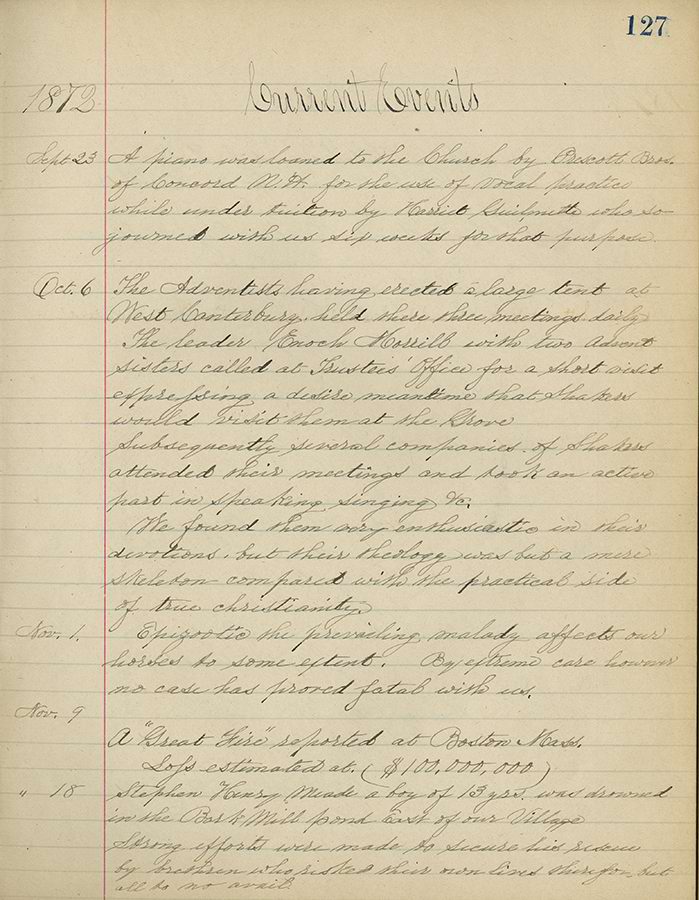 127
1872 Current Events
Sept 23 A piano was loaned to the Church by Prescott Bros.
of Concord N.H. for the use of vocal practice
while under tuition by Harriet Guilmette who so-
journed with us six weeks for that purpose.
Oct. 6 The Adventests having erected a large tent at
West Canterbury, held there three meetings daily
The leader Enoch Morrill with two advent
sisters called at Trustees' Office for a short visit
expressing a desire meantime that Shakers
would visit them at the Grove
Subsequently several companies of Shakers
attended their meetings and took an active
part in speaking, singing &c.
We found them very enthusiastic in their
devotions, but their theology was but a mere
skeleton compared with the practical side
of true christianity.
Nov. 1. Epizootic the prevailing malady affects our
horses to some extent. By extreme care however
no case has proved fatal with us.
Nov. 9
A "Great Fire" reported at Boston Mass.
Loss estimated at. ($100,000,000)
" 18 Stephen Henry Meade a boy of 13 yrs. was drowned
in the Bark Mill pond East of our Village
Strong efforts were made to secure his rescue
by brethren who risked their own lives therefor, but
all to no avail.